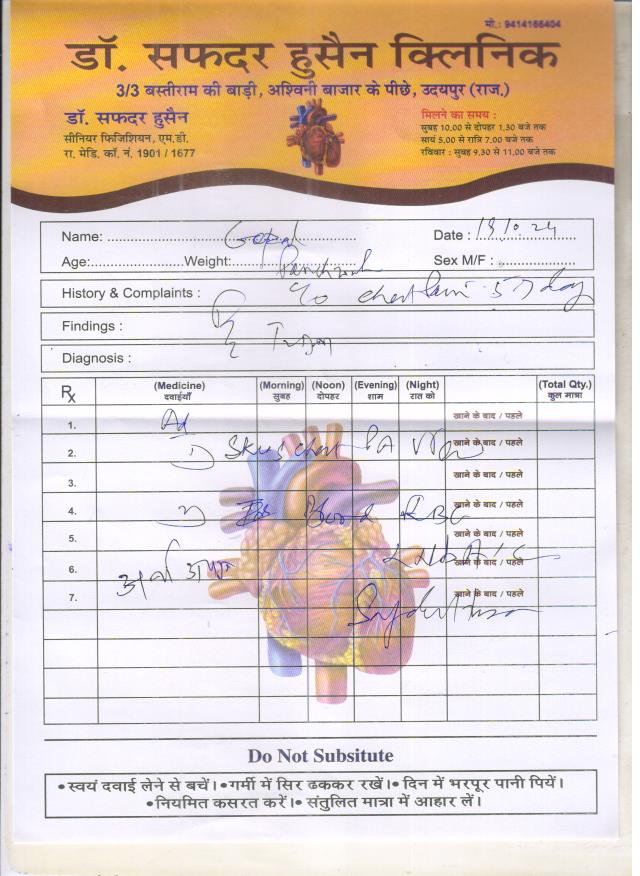 मो.: 9414166404
डॉ. सफदर हुसैन क्लिनिक
3/3 बस्तीराम की बाड़ी, अश्विनी बाजार के पीछे, उदयपुर (राज.)
डॉ. सफदर हुसैन
सीनियर फिजिशियन, एम.डी.
रा. मेडि. कॉ. नं. 1901 / 1677
मिलने का समय :
सुबह 10.00 से दोपहर 1.30 बजे तक
सायं 5.00 से रात्रि 7.00 बजे तक
रविवार : सुबह 9.30 से 11.00 बजे तक
Name: Gopal Date :
Age: Weight: Sex M/F :
History & Complaints : c/o chest pain
Findings :
Diagnosis :
Rx (Medicine) (Morning) (Noon) (Evening) (Night) (Total Qty.)
दवाईयाँ सुबह दोपहर शाम रात को कुल मात्रा
1. Ad खाने के बाद / पहले
2. 1) chest PA खाने के बाद / पहले
3. खाने के बाद / पहले
4. 2) Blood खाने के बाद / पहले
5. खाने के बाद / पहले
6. खाने के बाद / पहले
7. खाने के बाद / पहले
Do Not Subsitute
• स्वयं दवाई लेने से बचें। • गर्मी में सिर ढककर रखें। • दिन में भरपूर पानी पियें।
• नियमित कसरत करें। • संतुलित मात्रा में आहार लें।